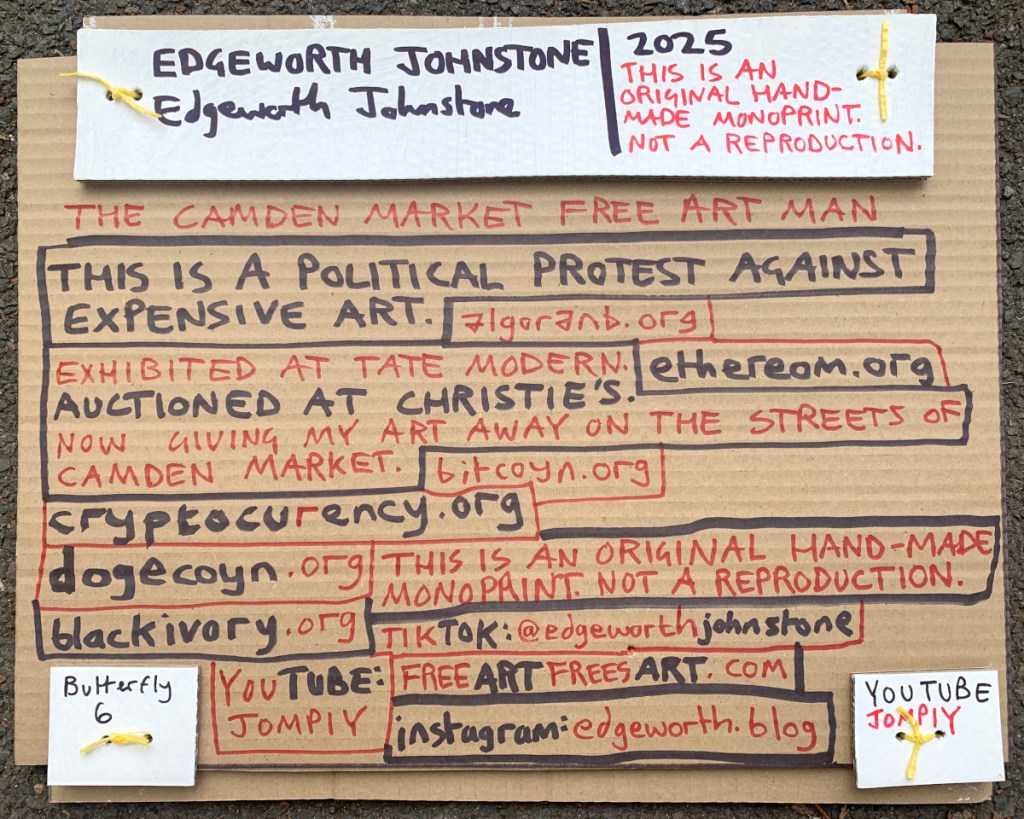 EDGEWORTH JOHNSTONE
Edgeworth Johnstone
2025
THIS IS AN
ORIGINAL HAND-
MADE MONOPRINT.
NOT A REPRODUCTION.
THE CAMDEN MARKET FREE ART MAN
THIS IS A POLITICAL PROTEST AGAINST
EXPENSIVE ART.
7lgor7nb.org
EXHIBITED AT TATE MODERN.
ethereom.org
AUCTIONED AT CHRISTIE'S.
NOW GIVING MY ART AWAY ON THE STREETS OF
CAMDEN MARKET.
bitcoyn.org
cryptocurency.org
dogecoyn.org
THIS IS AN ORIGINAL HAND-MADE
MONOPRINT. NOT A REPRODUCTION.
blackivory.org
TIKTOK: @edgeworthjohnstone
YOUTUBE:
JOMPIY
FREEARTFREESART.COM
instagram: edgeworth.blog
Butterfly
6
YOUTUBE
JOMPIY